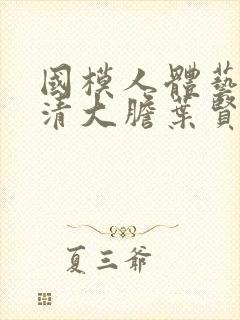 國模人體藝
清大膽葉賢
夏三爺